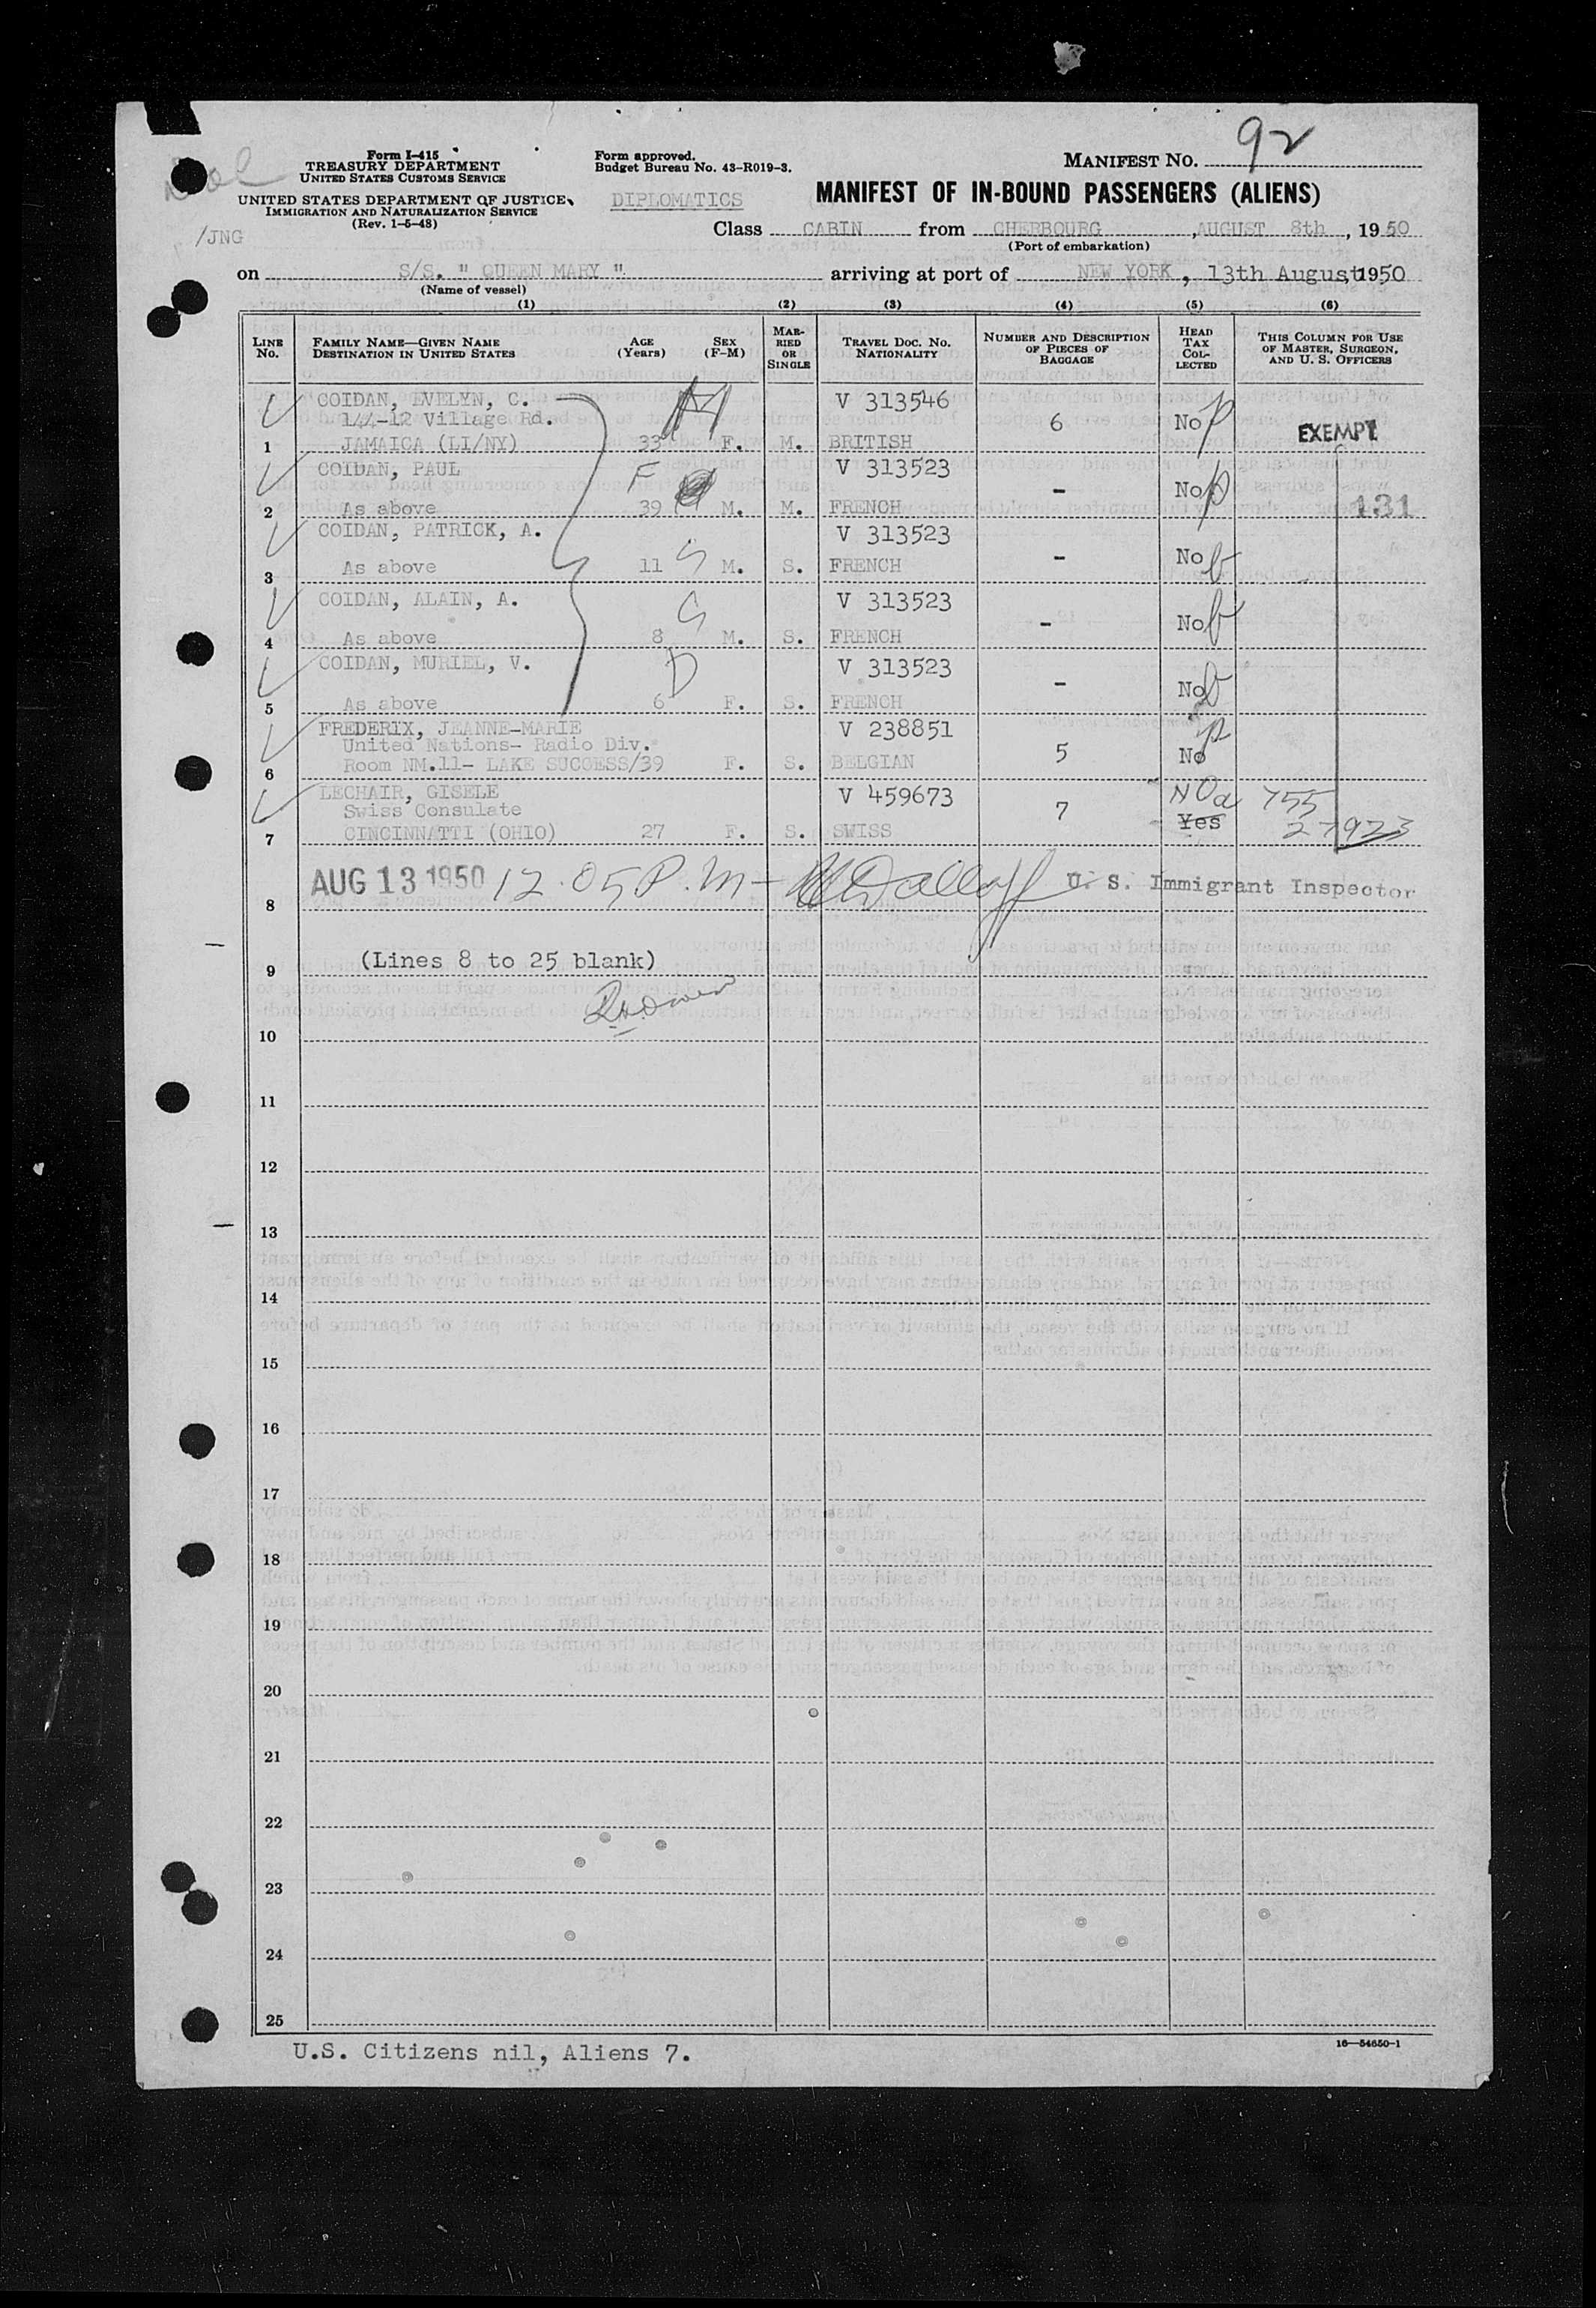 Form I-415
TREASURY DEPARTMENT
UNITED STATES CUSTOMS SERVICE
UNITED STATES DEPARTMENT OF JUSTICE
IMMIGRATION AND NATURALIZATION SERVICE
(Rev. 1-5-48)
/JNG
Form approved.
Budget Bureau No. 43-R019-3.
DIPLOMATICS
MANIFEST NO. 92
MANIFEST OF IN-BOUND PASSENGERS (ALIENS)
Class CABIN from CHERBOURG, AUGUST 8th, 1950
(Port of embarkation)
on S/S. " QUEEN MARY " arriving at port of NEW YORK, 13th August, 1950
(Name of vessel)
(1) (2) (3) (4) (5) (6)
LINE No. FAMILY NAME—GIVEN NAME DESTINATION IN UNITED STATES AGE (Years) SEX (F-M) MARRIED OR SINGLE TRAVEL DOC. NO. NATIONALITY NUMBER AND DESCRIPTION OF PIECES OF BAGGAGE HEAD TAX COLLECTED THIS COLUMN FOR USE OF MASTER, SURGEON, AND U. S. OFFICERS
COIDAN, EVELYN, C. V 313546
144-12 Village Rd. 6 No p EXEMPT
1 JAMAICA (LI/NY) 33 F. M. BRITISH
COIDAN, PAUL F V 313523
- No p
2 As above 39 M. M. FRENCH 131
COIDAN, PATRICK, A. V 313523
- No
3 As above 11 S M. S. FRENCH
COIDAN, ALAIN, A. V 313523
- No
4 As above 8 S M. S. FRENCH
COIDAN, MURIEL, V. D V 313523
- No
5 As above 6 F. S. FRENCH
FREDERIX, JEANNE-MARIE V 238851 p
United Nations- Radio Div. 5
6 Room NM.11- LAKE SUCCESS/39 F. S. BELGIAN No
LECHAIR, GISELE V 459673 NO 755
Swiss Consulate 7 Yes
7 CINCINNATTI (OHIO) 27 F. S. SWISS 27923
AUG 13 1950 12.05 P.M- U. S. Immigrant Inspector
8
9 (Lines 8 to 25 blank)
10
11
12
13
14
15
16
17
18
19
20
21
22
23
24
25
U.S. Citizens nil, Aliens 7.
16—54650-1